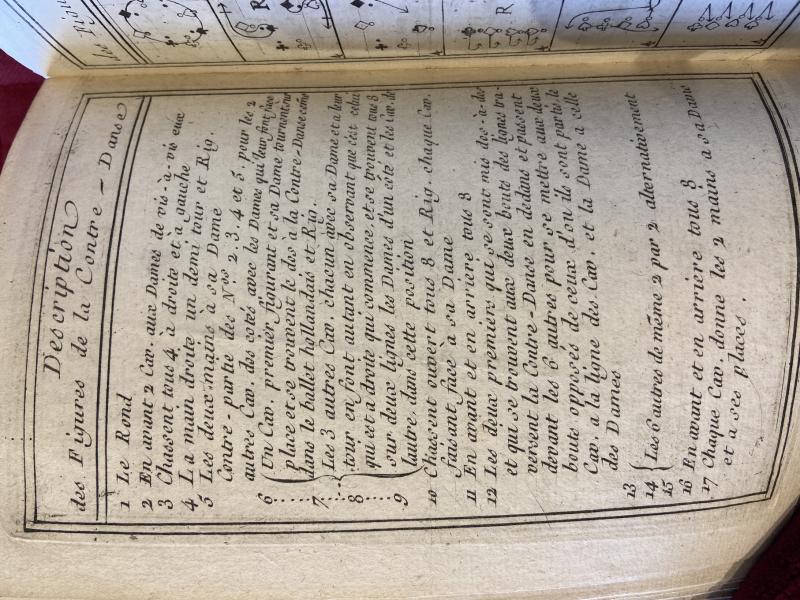 Description
des Figures de la Contre-Danse
1 Le Rond
2 En avant 2 Cav. aux Dames de vis-à-vis eux
3 Chassent tous 4, à droite et, à gauche
4 La main droite un demi tour et Rig.
5 Les deux mains à sa Dame
Contre-partie des Nos 2, 3, 4 et 5, pour les 2
autres Cav. des cotés avec les Dames qui leur font face
6 Un Cav. premier figurant et sa Dame tournent sur
place et se trouvent le dos à la Contre-Danse come
dans le ballet hollandais et Rig.
7 Les 3 autres Cav. chacun avec sa Dame et a leur
8 tour en font autant en observant que c'est celui
qui est a droite qui commence, et se trouvent tous 8
sur deux lignes les Dames d'un côté et les Cav. de
9 l'autre, dans cette position
10 Chassent ouvert tous 8 et Rig. chaque Cav.
faisant face à sa Dame
11 En avant et en arriere tous 8
12 Les deux premiers qui se sont mis dos-à-dos
et qui se trouvent aux deux bouts des lignes tra-
versent la Contre-Danse en dedans et passent
devant les 6 autres pour se mettre aux deux
bouts opposés de ceux d'ou ils sont partis le
Cav. a la ligne des Cav. et la Dame a celle
des Dames
13
14 Les 6 autres de même 2 par 2 alternativement
15
16 En avant et en arriere tous 8
17 Chaque Cav. donne les 2 mains a sa Dame
et a ses places.